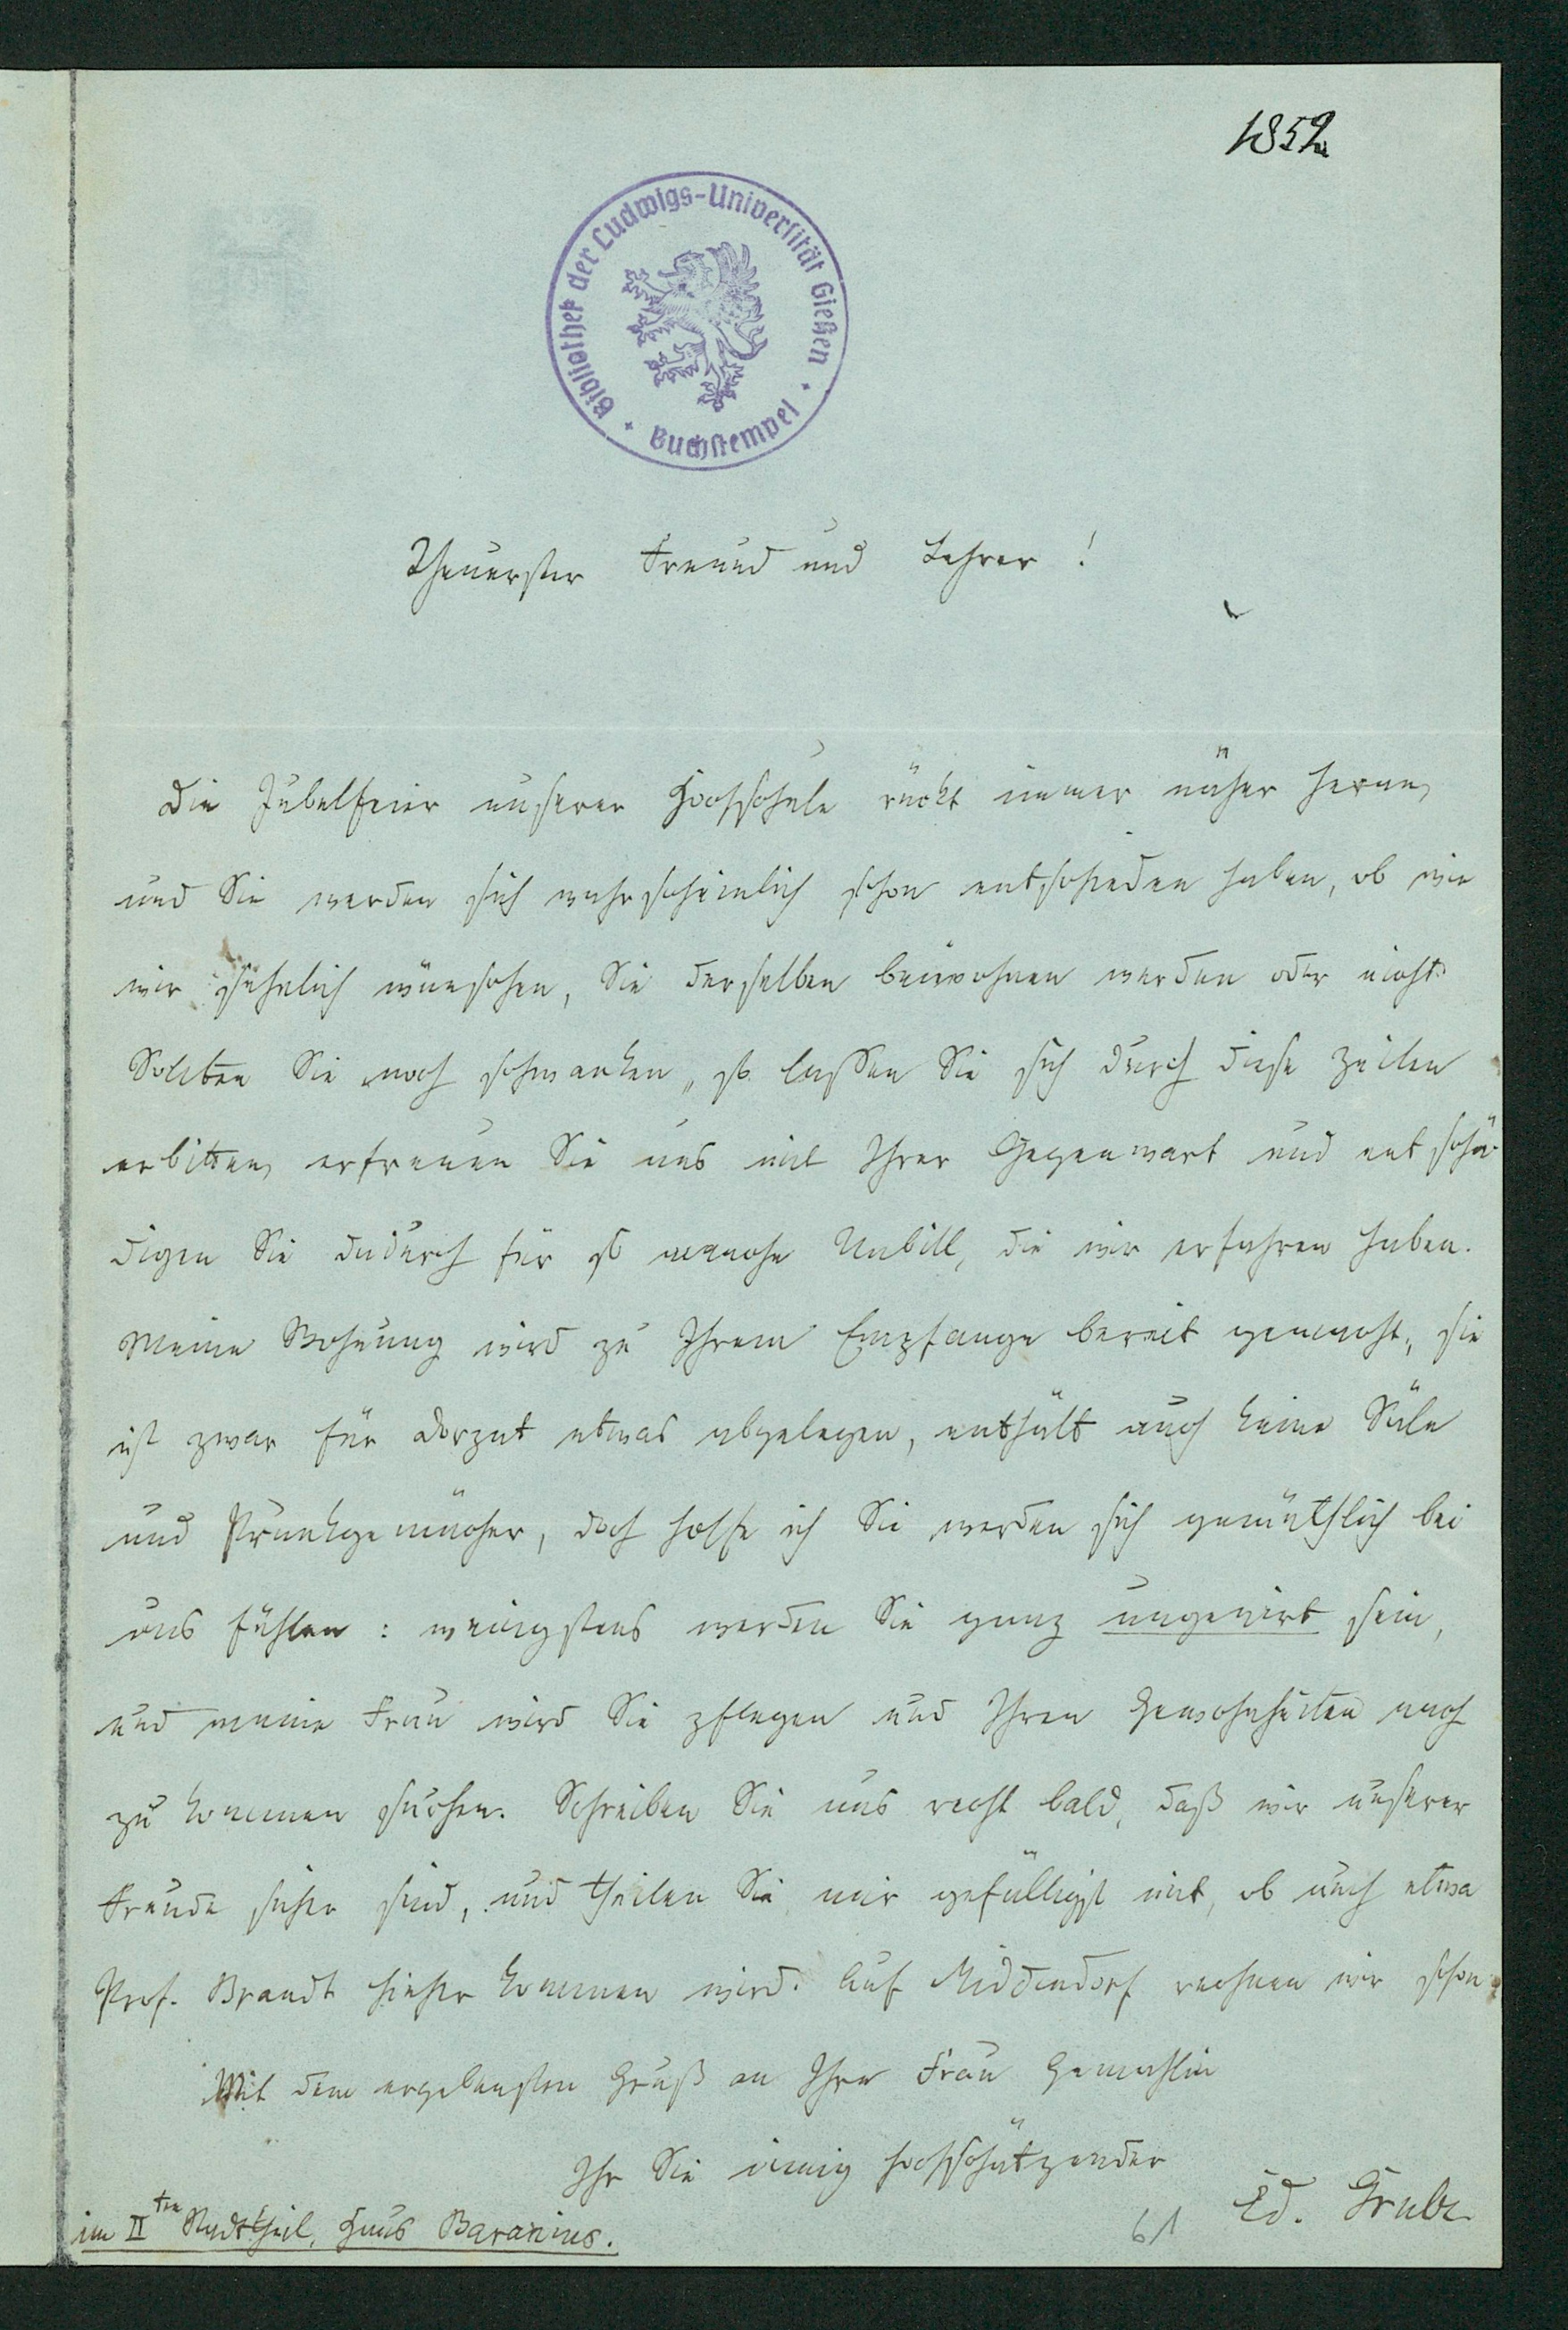 1852
Bibliothek der Ludwigs-Universität Gießen
Buchstempel
Theuerster Freund und Lehrer!
Die Jubelfeier unserer Hochschule rückt immer näher heran,
und Sie werden sich wahrscheinlich schon entschieden haben, ob wie
wir sehnlich wünschen, Sie derselben beiwohnen werden oder nicht.
Sollten Sie noch schwanken, so lassen Sie sich durch diese Zeilen
erbitten, erfreuen Sie uns mit Ihrer Gegenwart und entschä-
digen Sie dadurch für so manche Unbill, die wir erfahren haben.
Meine Wohnung wird zu Ihrem Empfange bereit gemacht, sie
ist zwar für Dorpat etwas abgelegen, enthält auch keine Säle
und Prunkgemächer, doch hoffe ich Sie werden sich gemüthlich bei
uns fühlen: wenigstens werden Sie ganz ungenirt sein,
und meine Frau wird Sie pflegen und Ihren Gewohnheiten nach
zu kommen suchen. Schreiben Sie uns recht bald, daß wir unserer
Freude sicher sind, und theilen Sie mir gefälligst mit, ob auch etwa
Prof. Brandt hieher kommen wird. Auf Middendorf rechnen wir schon.
Mit dem ergebensten Gruß an Ihre Frau Gemahlin
Ihr Sie innig hochschätzender
Ed. Grube
im II ten Stadttheil, Haus Baranius.
61